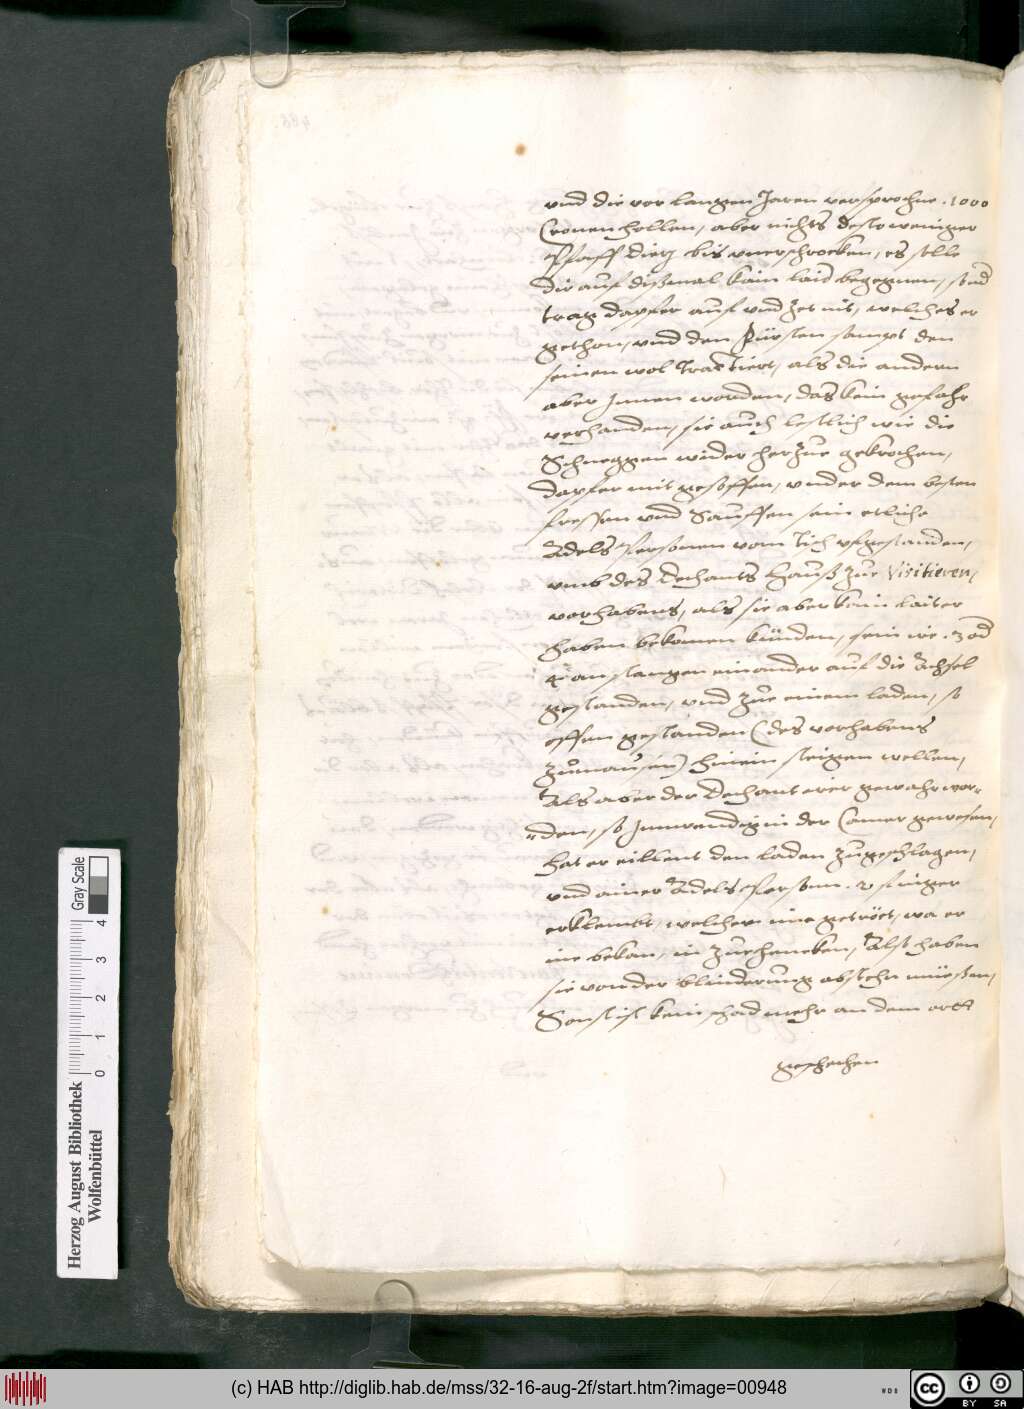 vnd die vor langen Jaren versprochne .1000
Cronen hollen, aber nichts desto weniger
Pfaff dietz bis vnerschrocken, es solle
dir auf dißmal kain laid begegnen, sond
trag dapfer auf vnd Zer nit, welches er
gethon, vnd den Fürsten sampt den
seinen wol Tractiert, als die andern
aber Innen worden, das kein gefahr
verhanden, sie auch lestlich wie die
Schneggen wider herzue gekrochen,
dapfer mit gesoffen, vnder dem besten
fressen vnd Sauffen sein etliche
Adels Personen vom Tisch vfgestanden,
vmb des dechants Hauß Zue Visitieren,
vorhabens, als sie aber kein laiter
haben bekomen künden, sein ire .3 od
4 an stangen einander auf die Achsel
gestanden, vnd zue einem laden, so
offen gestanden (des vorhabens
Zumausen) hinein steigen wellen,
Als aber der dechant irer gewahr wor=
=den, so Innwendig in der Camer gewesen,
hat er eillent den laden Zugeschlagen,
vnd ainer Adels Person .2 finger
erklembt, welcher ime getröet, wa er
ine bekom, in Zuehencken, Alst haben
sie von der blinderung abstehn müeßen,
Sonst ist kein schad mehr an dem ortt
geschechen
Herzog August Bibliothek
Wolfenbüttel
Gray Scale
0 1 2 3 4
(c) HAB http://diglib.hab.de/mss/32-16-aug-2f/start.htm?image=00948
WDB
cc BY SA